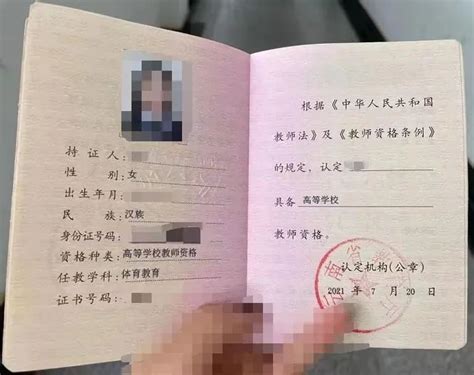 持证人:
性别: 女
出生年月:
民族: 汉族
身份证号码:
资格种类: 高等学校教师资格
任教学科: 体育教育
证书号码:
根据《中华人民共和国
教师法》及《教师资格条例》
的规定，认定
具备 高等学校
教师资格。
认定机构(公章)
2021 年 7 月 20 日